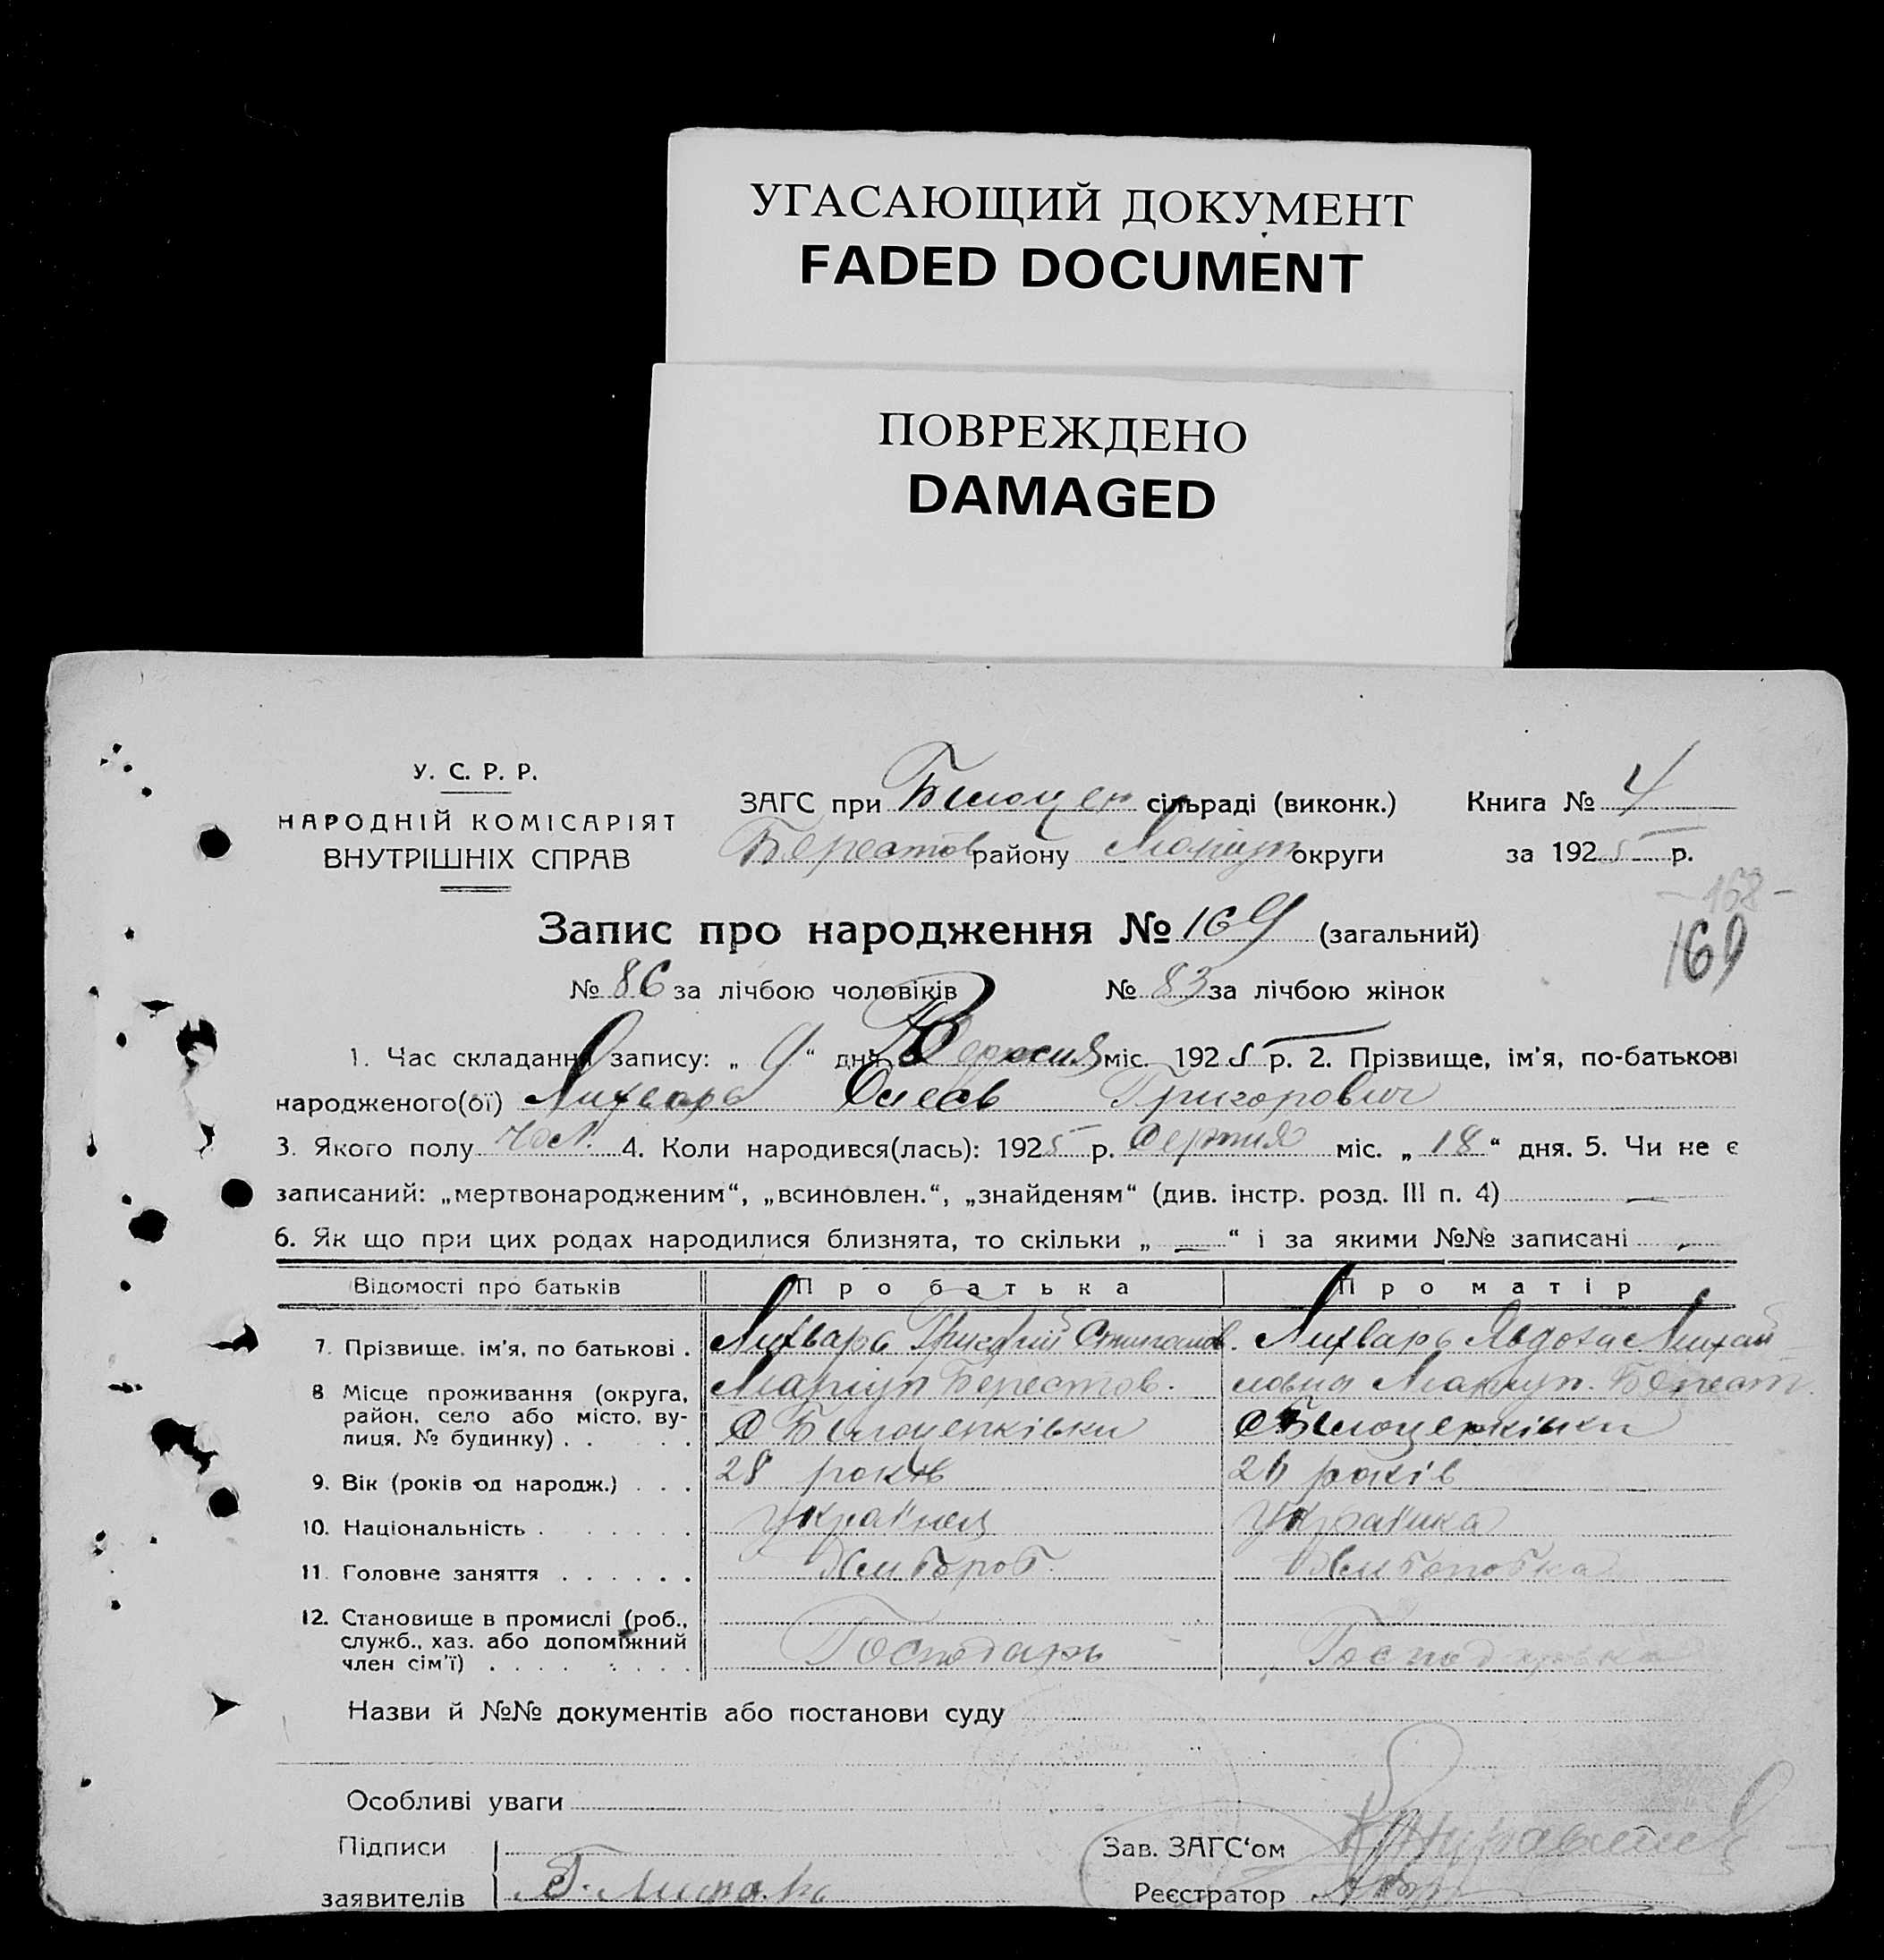 УГАСАЮЩИЙ ДОКУМЕНТ
FADED DOCUMENT
ПОВРЕЖДЕНО
DAMAGED
У. С. Р. Р.
НАРОДНІЙ КОМІСАРІЯТ
ВНУТРІШНІХ СПРАВ
ЗАГС при Білоцер сільраді (виконк.)
Берестов району Маріуп округи
Книга № 4
за 1925 р.
168
169
Запис про народження № 169 (загальний)
№ 86 за лічбою чоловіків № 83 за лічбою жінок
1. Час складання запису: „ 9 “ дня Вересня міс. 1925 р. 2. Прізвище, ім'я, по-батькові
народженого(ої) Лихварь Олесь Григорович
3. Якого полу Чол. 4. Коли народився(лась): 1925 р. Серпня міс. „ 18 “ дня. 5. Чи не є
записаний: „мертвонародженим“, „всиновлен.“, „знайденям“ (див. інстр. розд. III п. 4) —
6. Як що при цих родах народилися близнята, то скільки „ — “ і за якими №№ записані —
Відомості про батьків Про батька Про матір
7. Прізвище, ім'я, по батькові . Лихварь Григорій Степанов. Лихварь Явдоха Михай
8 Місце проживання (округа, Маріуп Берестов. ловна Маріуп. Берест.
район, село або місто, ву-
лиця, № будинку) . . . . С Білоцерківки С Білоцерківки
9. Вік (років од народж.) . . . 28 років 26 років
10. Національність . . . . . . Українець Українка
11. Головне заняття . . . . . . Хлибороб. Хлиборобка
12. Становище в промислі (роб.,
служб., хаз. або допоміжний
член сім'ї) . . . . . . . . Господарь Господарька
Назви й №№ документів або постанови суду
Особливі уваги
Підписи
заявителів
Зав. ЗАГС'ом
Реєстратор